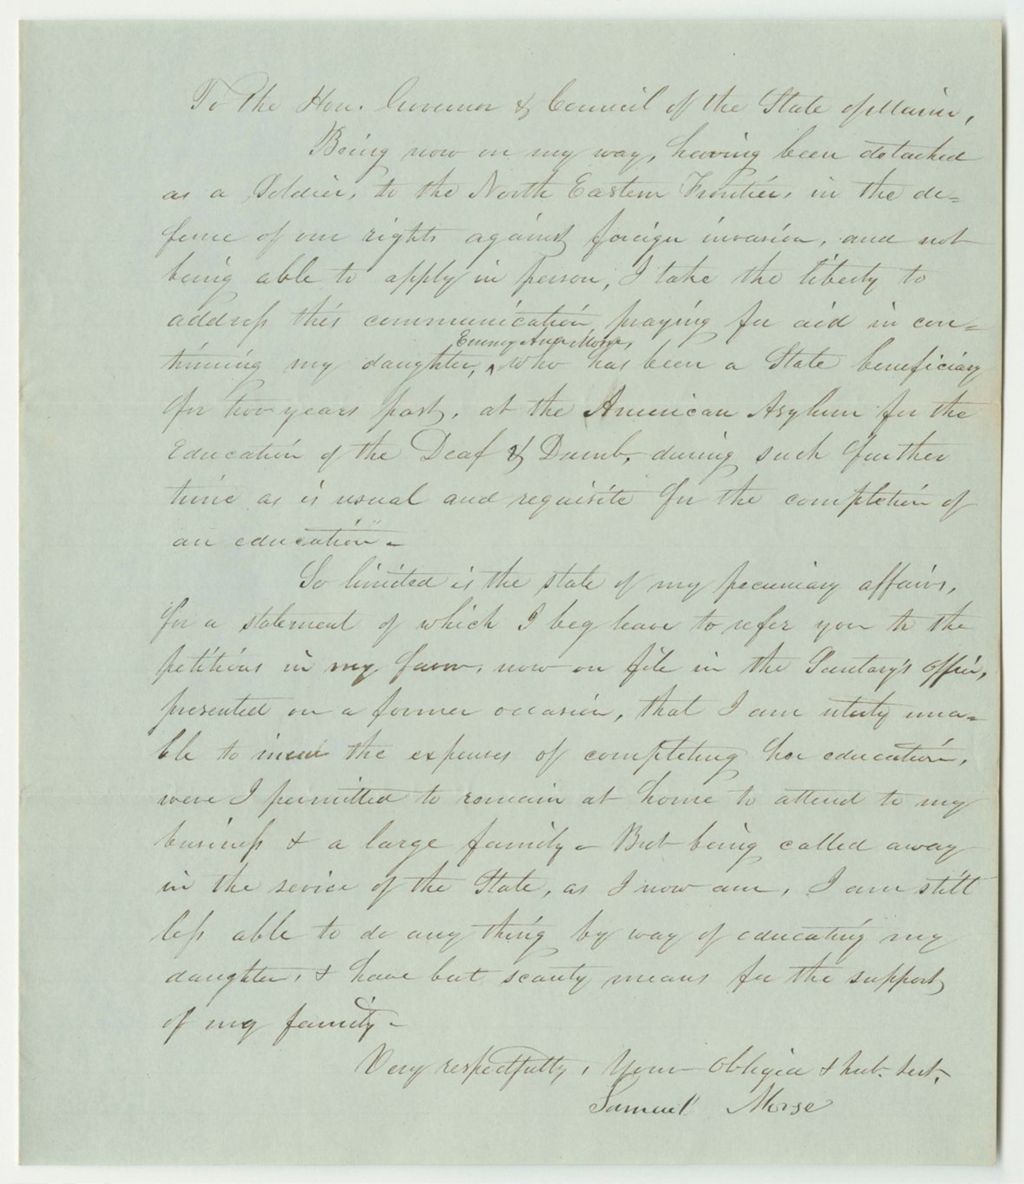 To the Hon. Governor & Council of the State of Maine,
Being now on my way, having been detached
as a Soldier, to the North Eastern Frontier, in the de=
fence of our rights against foreign invasion, and not
being able to apply in person, I take the liberty to
address this communication, praying for aid in con=
Emony Ann Morse,
tinuing my daughter, ^ who has been a State beneficiary
for two years past, at the American Asylum for the
Education of the Deaf & Dumb, during such further
time as is usual and requisite for the completion of
an education -
So limited is the state of my pecuniary affairs,
for a statement of which I beg leave to refer you to the
petitions in my favor, now on file in the Secretary's office,
presented on a former occasion, that I am utterly una=
ble to incur the expenses of completing her education,
were I permitted to remain at home to attend to my
business & a large family - But being called away
in the service of the State, as I now am, I am still
less able to do any thing by way of educating my
daughter, & have but scanty means for the support
of my family -
Very respectfully, Your obliged & hub. Sert.
Samuel Morse